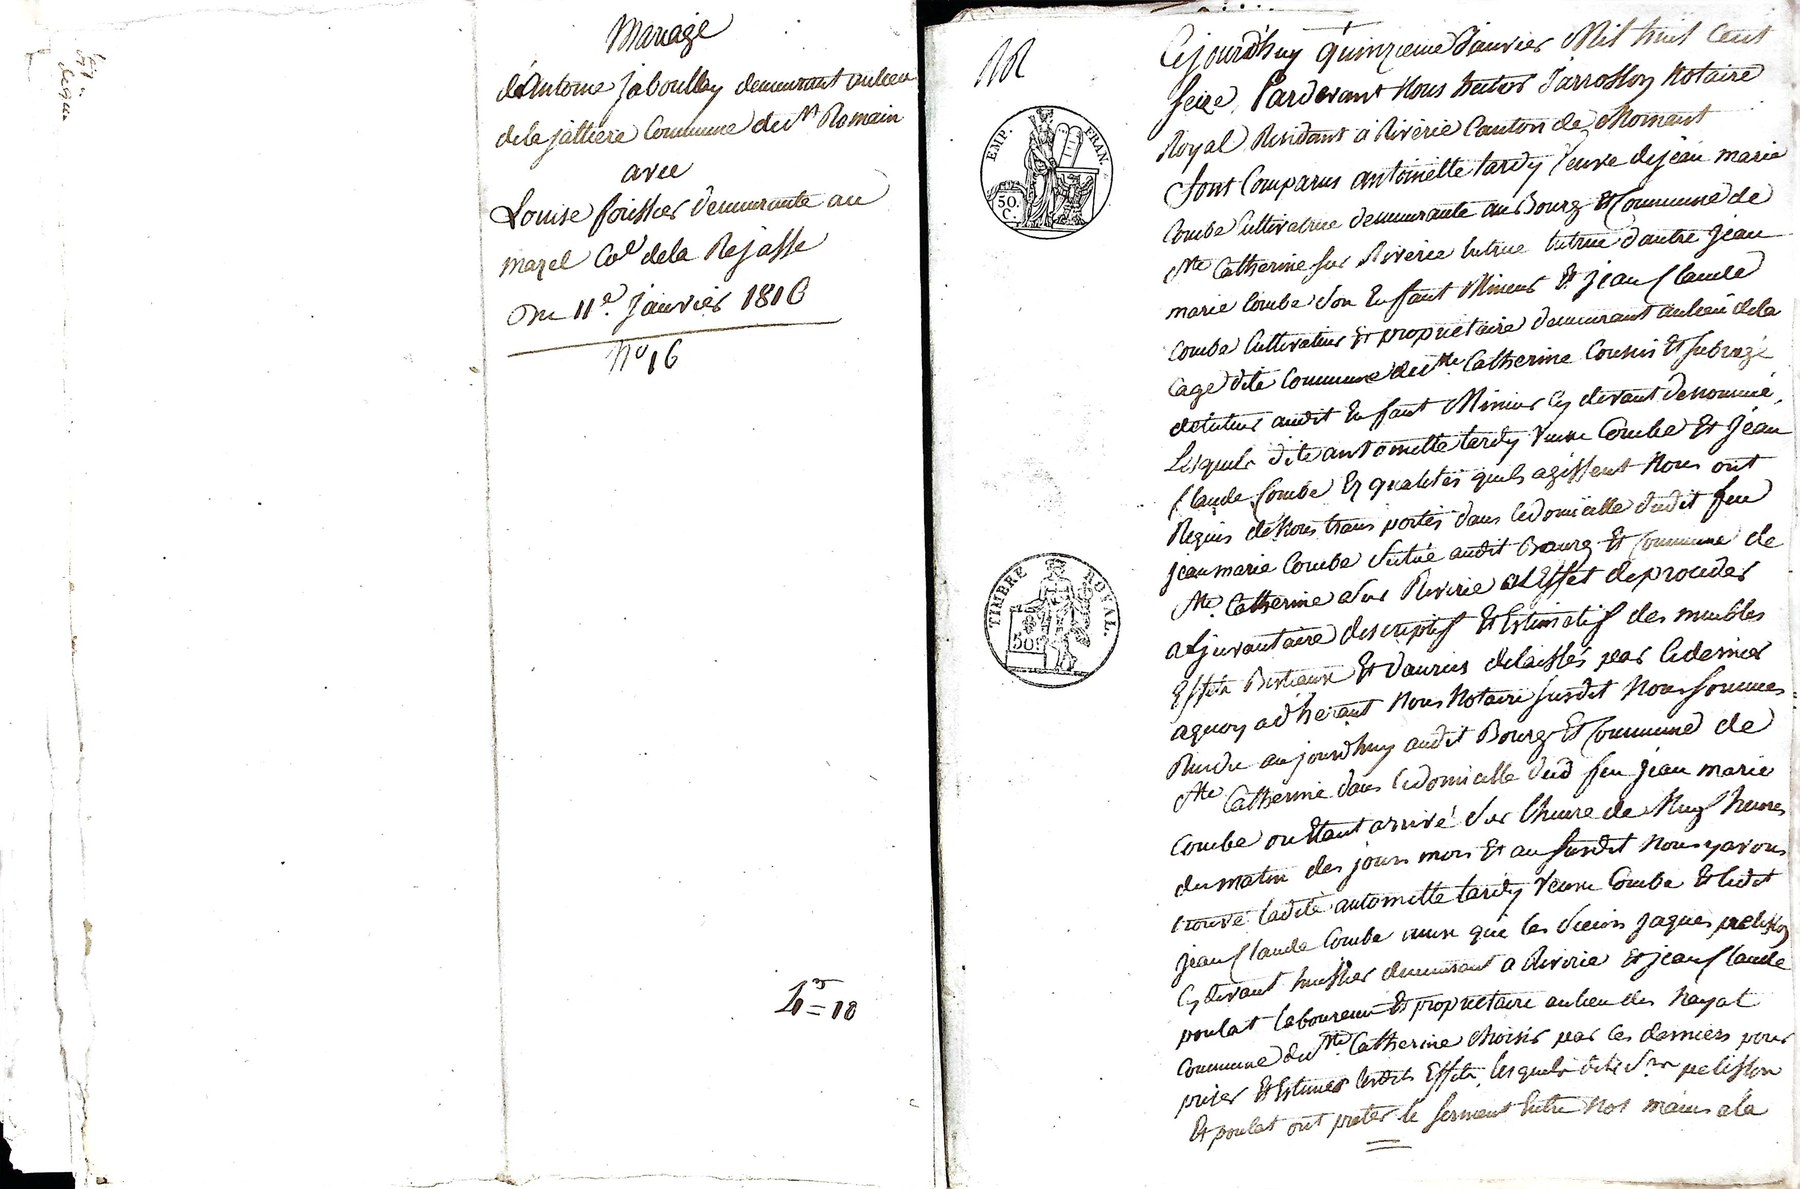 Mariage
d'Antoine jaboulley demeurant au lieu
de la jalliere Commune de St Romain
avec
Louise foissier demeurante au
mazel Cne de la Rejasse
Du 11e. janvier 1816
No 16
=18
EMP. FRAN.
50.
C.
TIMBRE ROYAL.
50
Cejourd'huy quinzieme Janvier Mil huit Cent
seize, Pardevant Nous Jarrosson Notaire
Royal Residant a Riverie Canton de Mornant
Sont Comparus antoinette tardy Veuve de jean marie
Combe Cultivatrice demeurante au Bourg Et Commune de
Ste Catherine sur Riverie tutrice d'autre jean
marie Combe son Enffant Mineur Et jean Claude
Combe Cultivateur Et proprietaire demeurant au lieu de la
Cage dite Commune de Ste Catherine Cousin Et subrogé
de tuteur audit Enffant Mineur Cy devant denommé,
Lesquels dite antoinette tardy Veuve Combe Et jean
Claude Combe Ez qualités quils agissent Nous ont
Requis de Nous transporter dans le domicille dudit feu
jean marie Combe situé audit Bourg Et Commune de
Ste Catherine sur Riverie a l'Effet de proceder
a l'jnvantaire descriptif Et Estimatif des meubles
Effets Bestiaux Et danrées delaissés par le dernier
aquoy adherant Nous Notaire susdit Nous sommes
Rendu aujourdhuy audit Bourg Et Commune de
Ste Catherine dans le domicille dud feu jean marie
Combe ou Etant arrivé sur l'heure de Neuf heures
du matin des jours mois Et an susdit Nous y avons
trouvé ladite antoinette tardy Veuve Combe Et ledit
jean Claude Combe que les sieurs jaques pelisson
Cy devant huissier demeurant a Riverie Et jean Claude
poulat laboureur Et proprietaire au lieu du hayat
Commune de Ste Catherine choisis par Ces derniers pour
priser Et Estimer lesdits Effets, lesquels dits Srs pelisson
Et poulat ont preter le serment Entre Nos mains a la